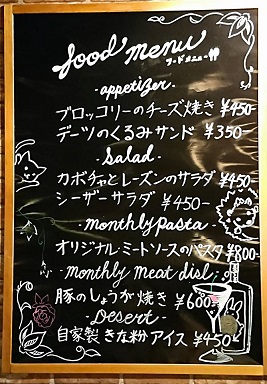 food menu
フードメニュー
・appetizer・
ブロッコリーのチーズ焼き ¥450-
デーツのくるみサンド ¥350-
・Salad・
カボチャとレーズンのサラダ ¥450-
シーザーサラダ ¥450-
・monthly pasta・
オリジナル・ミートソースのパスタ ¥800-
・monthly meat dish・
豚のしょうが焼き ¥600-
・Desert・
自家製きな粉アイス ¥450-